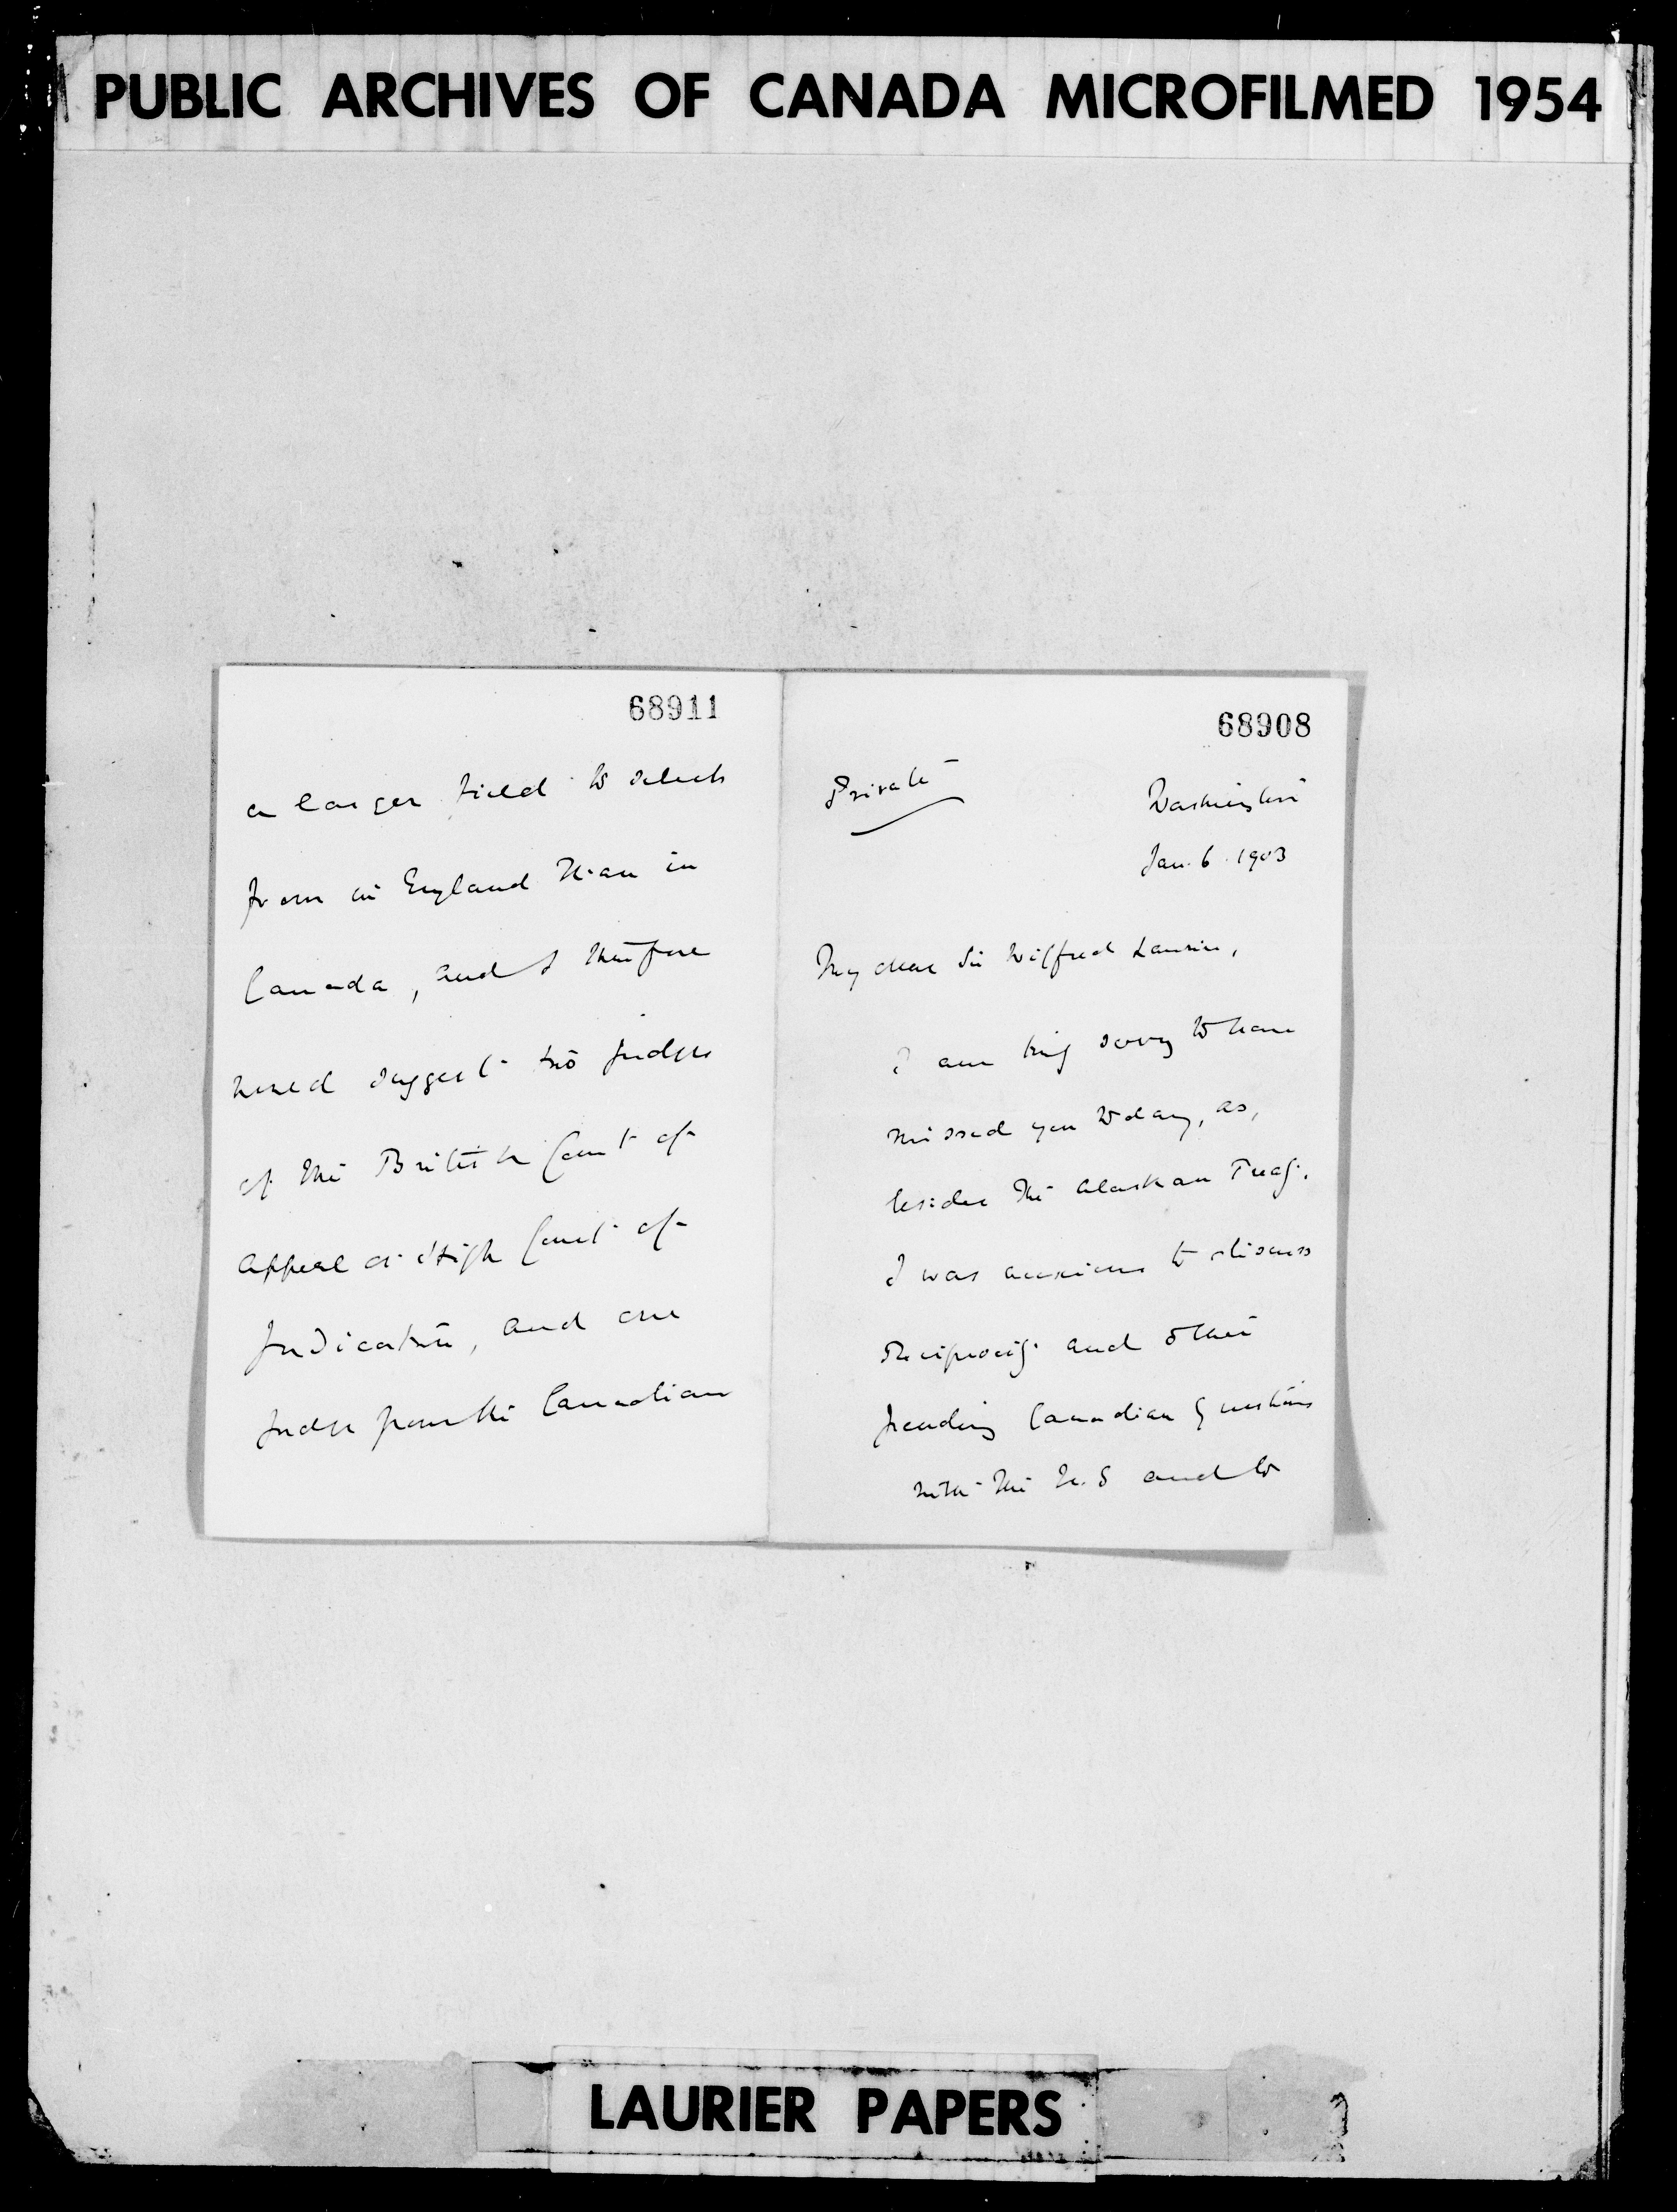 PUBLIC ARCHIVES OF CANADA MICROFILMED 1954
68911
a larger field to select
from in England than in
Canada, and I therefore
would suggest two judges
of the British Court of
Appeal or High Court of
Judicature, and one
judge from the Canadian
68908
Private
Washington
Jan. 6. 1903
My dear Sir Wilfred Laurier,
I am very sorry to have
missed you today, as,
besides the Alaskan Treaty,
I was anxious to discuss
Reciprocity and other
pending Canadian Questions
with the U.S and to
LAURIER PAPERS